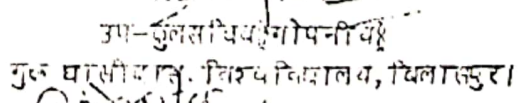 उप-कुलसचिव (गोपनीय)
गुरू घासीदास विश्वविद्यालय, बिलासपुर।